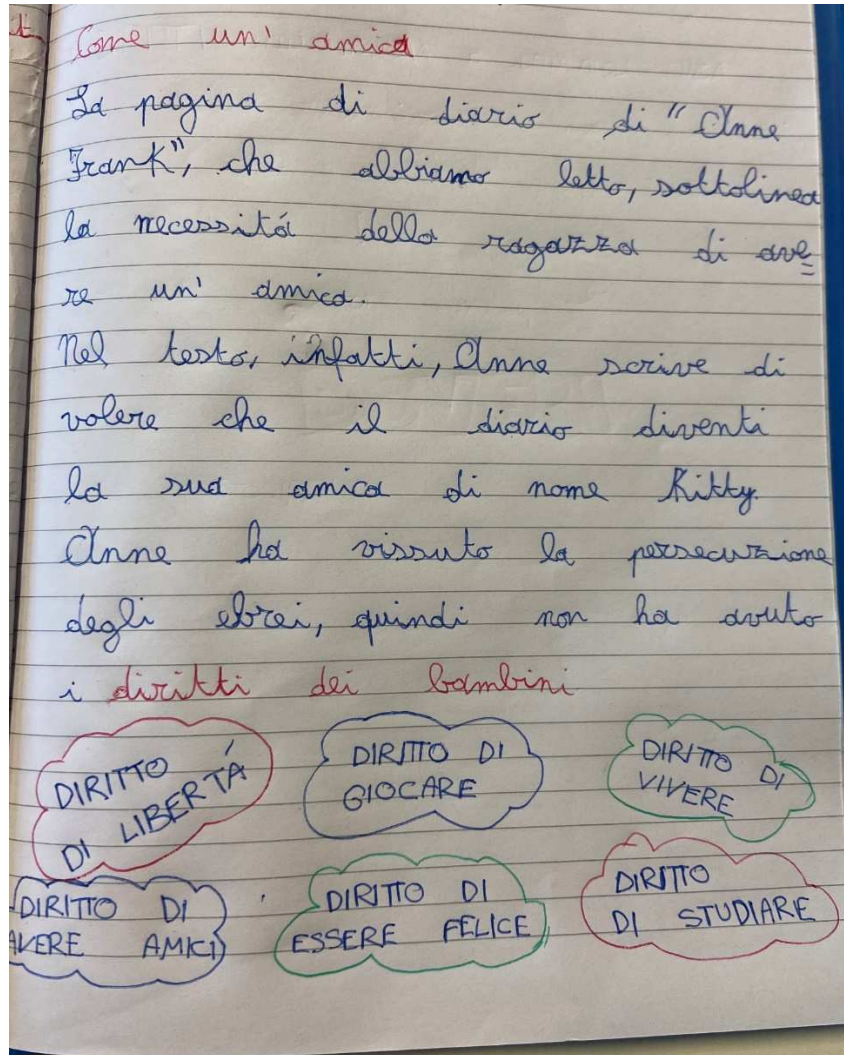 Come un' amica
La pagina di diario di "Anne
Frank", che abbiamo letto, sottolinea
la necessitá della ragazza di ave
re un' amica.
Nel testo, infatti, Anne scrive di
volere che il diario diventi
la sua amica di nome Kitty.
Anne ha vissuto la persecuzione
degli ebrei, quindi non ha avuto
i diritti dei bambini
DIRITTO
DI LIBERTÁ
DIRITTO DI
GIOCARE
DIRITTO DI
VIVERE
DIRITTO DI
AVERE AMICI
DIRITTO DI
ESSERE FELICE
DIRITTO
DI STUDIARE